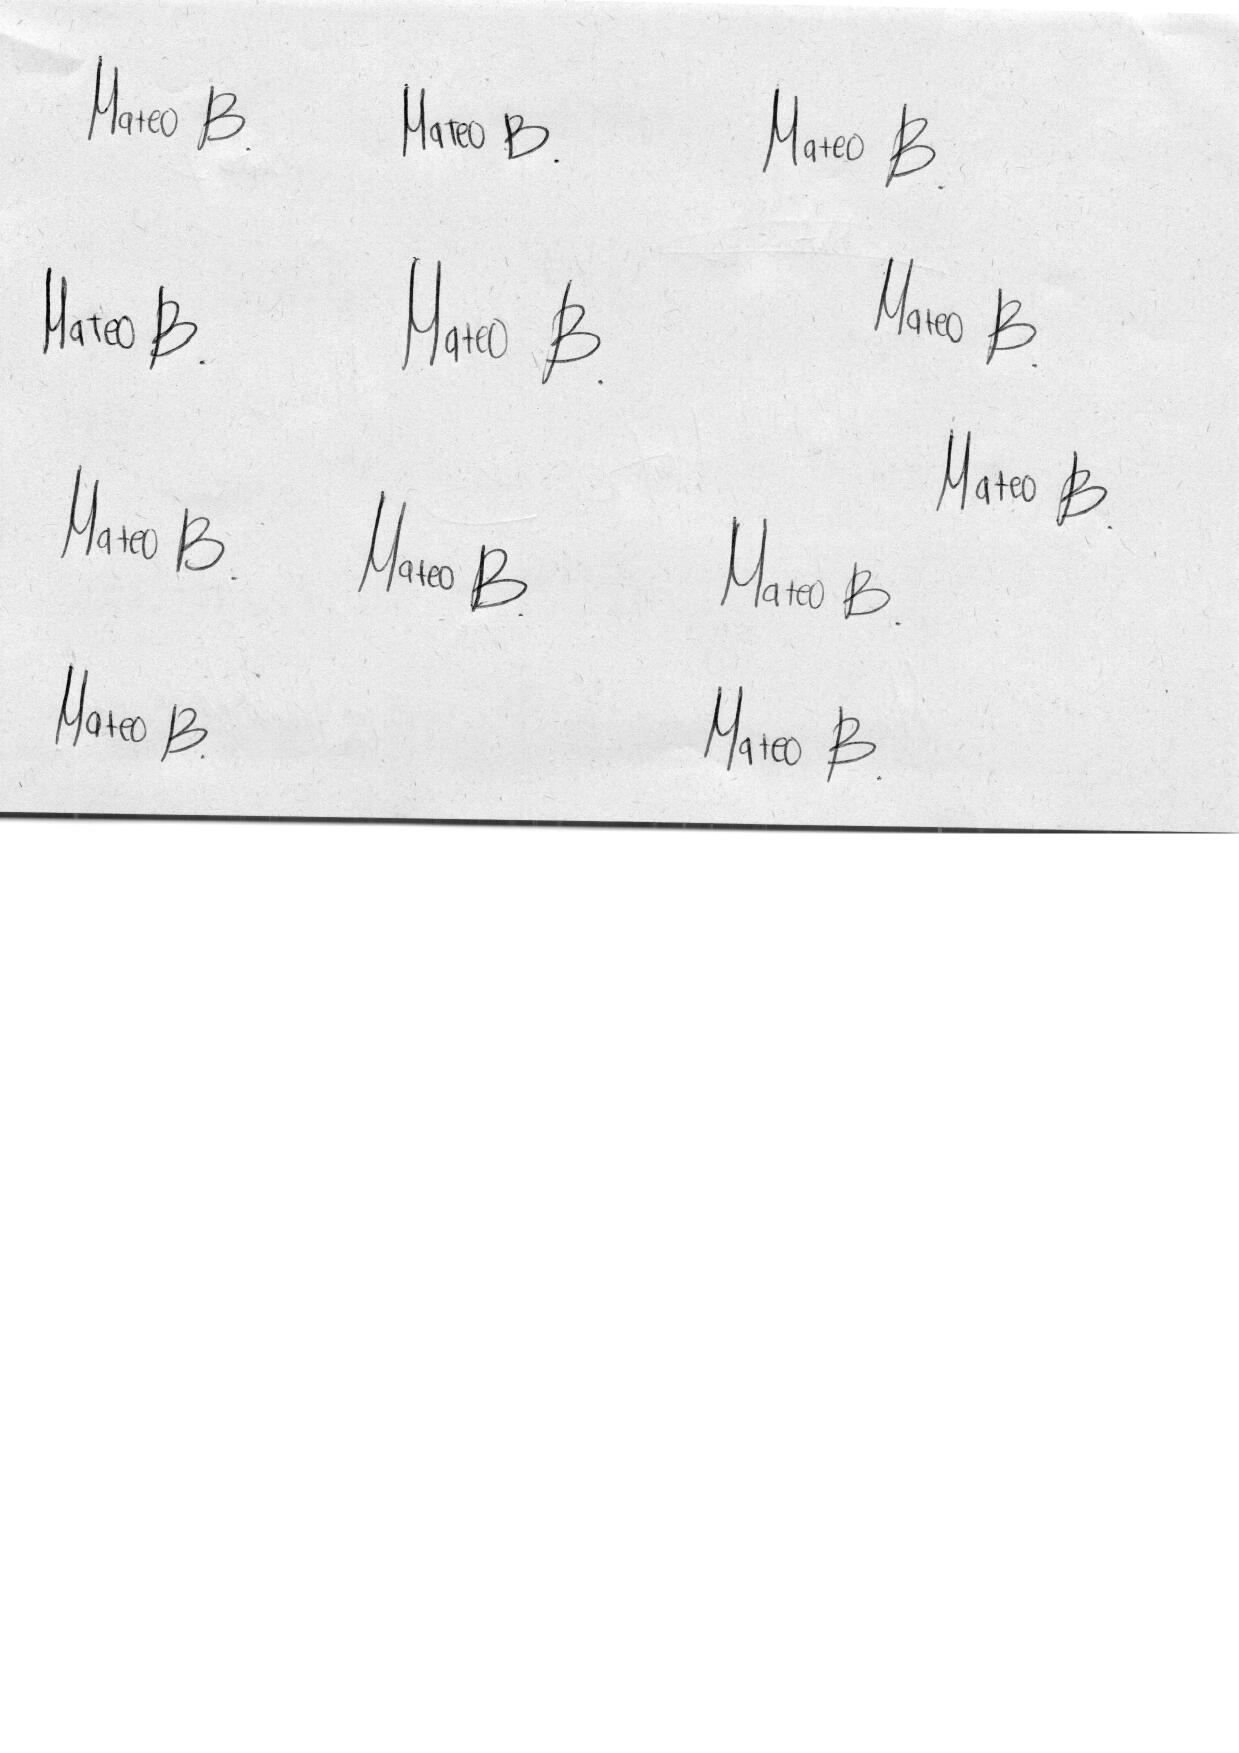 Mateo B.
Mateo B.
Mateo B.
Mateo B.
Mateo B.
Mateo B.
Mateo B.
Mateo B.
Mateo B.
Mateo B.
Mateo B.
Mateo B.